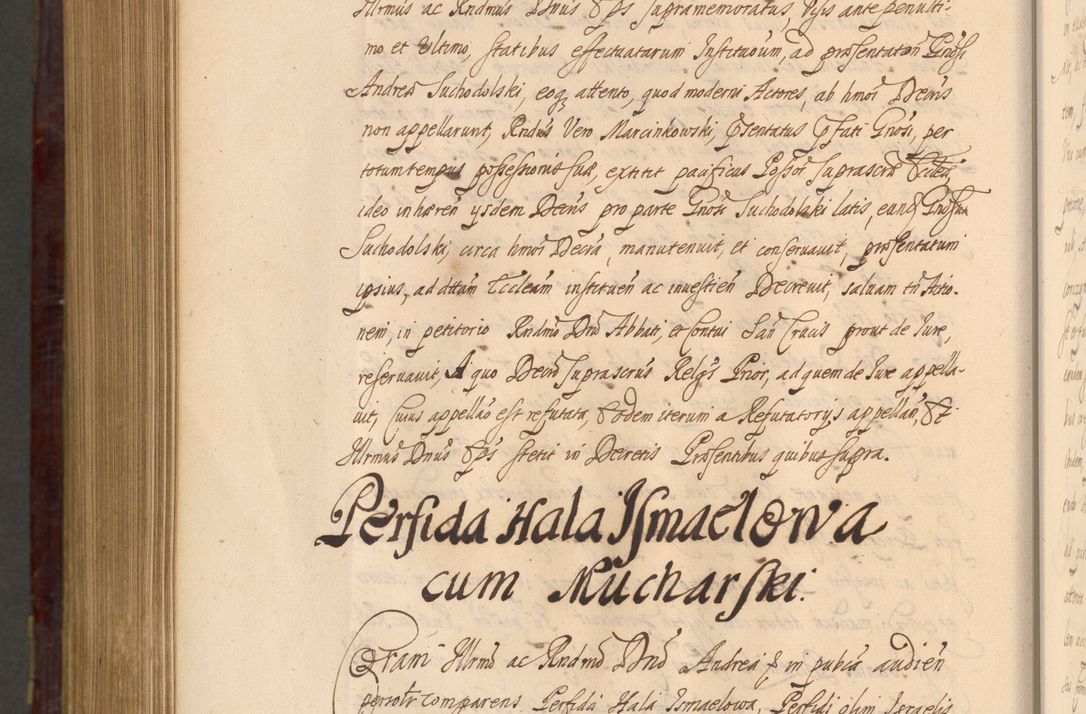 Illrmus ac Rndmus Dnus Eps supramemoratus, Visis ante penulti-
mo et Ultimo, statibus effectuatarum Institutium, ad præsentaton Gnosi
Andreæ Suchodolski, eoq attento, quod moderni Actores, ab hmoi Decris
non appellarunt, Rndus Vero Marcinkowski, Psentatus Pfati Gnosi, per
totum tempus possessionis suæ, extitit pacificus Possor suprascræ Eccliæ,
ideo inhæren ysdem Decris pro parte Gnosi Suchodolski latis, eund Gnosum
Suchodolski, circa hmoi Decra, manutenuit, et conservavit, præsentatum
ipsius, ad dttam Eccleam instituen ac investien Decrevit, salvam tn Actio-
nem, in petitorio Rndmo Dno Abbati, et Contui San Crucis prout de Iure,
reservavit, A quo Decro suprascrus Relgs Prior, ad quem de Iure appella-
vit, Cuius appellao est refutata, Eodem iterum a Refutatorys appellan, Et
Illrmus Dnus Eps stetit in Decretis Præsentibus quibus supra.
Perfida Hala Ismaelowa
cum Mucharski.
Coram Illrmo ac Rndmo Dno Andrea P in pubca audien
personlr comparens Perfida Hala Ismaelowa, Perfidi olim Israelis